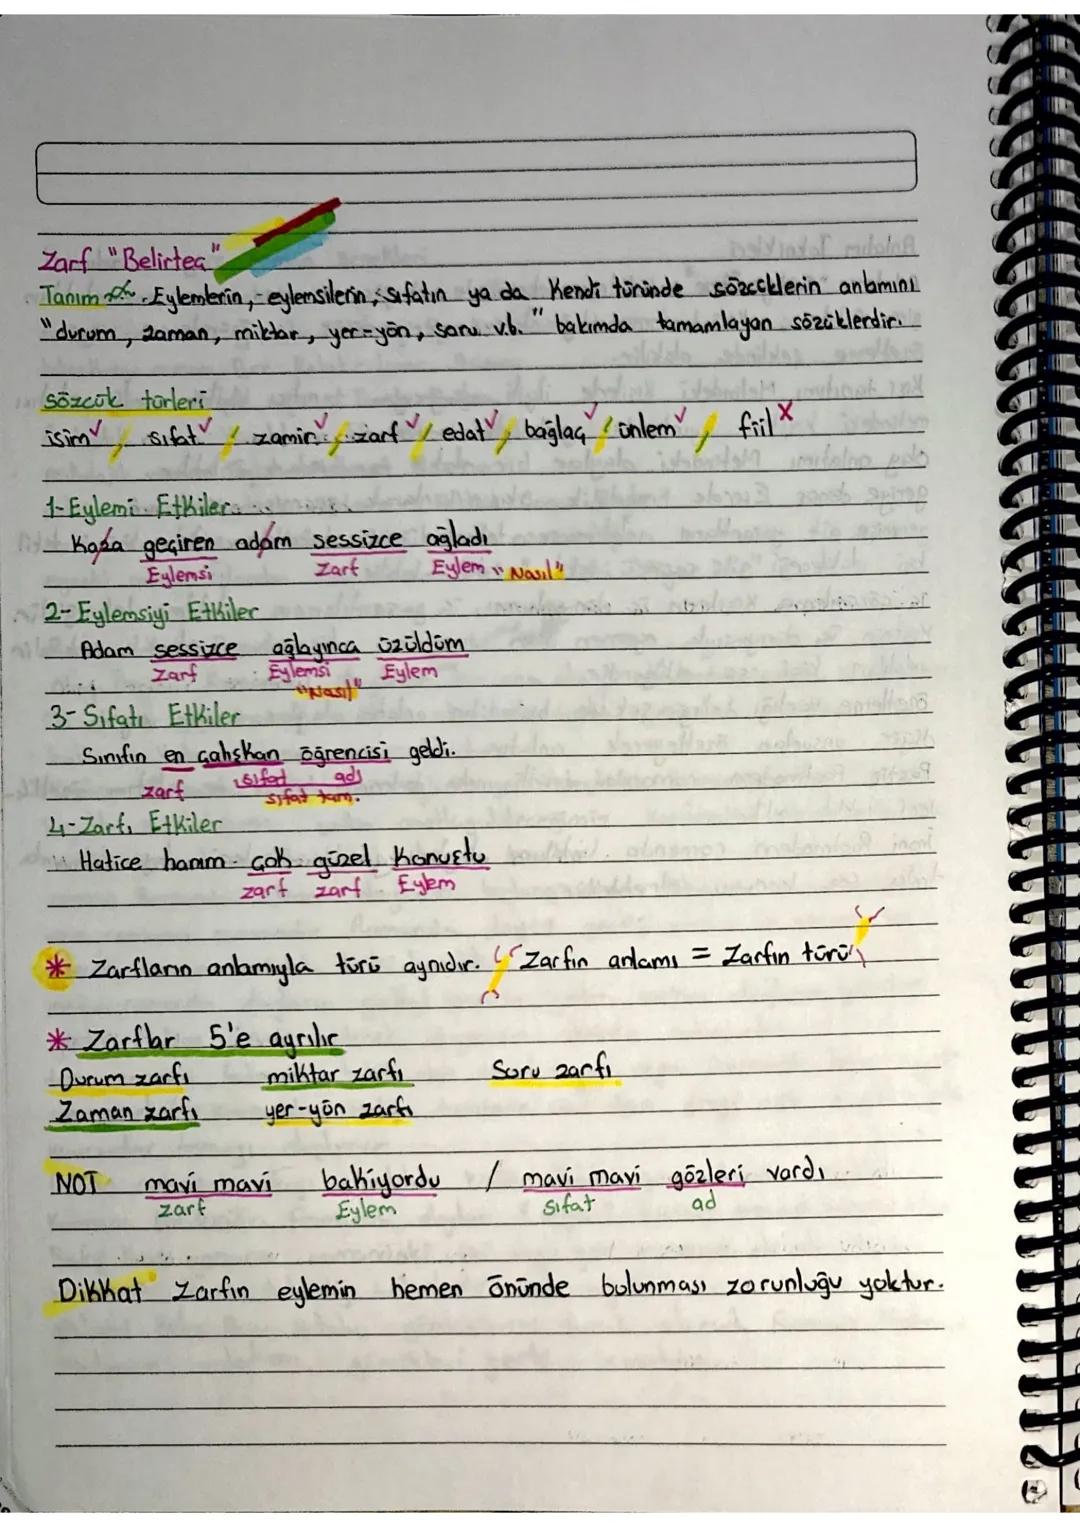 Zarf "Belirteç"
Tanım Eylemlerin, eylemsilerin, sıfatın ya da Kendi türünde sözcüklerin anlamını
"durum, zaman, miktar, yer-yön, soru v.b." bakımda tamamlayan sözüklerdir.
sözcük türleri
isim✓ / sıfat✓ / zamir✓ / zarf✓ / edat✓ / bağlaç✓ / ünlem✓ / fiil X
1-Eylemi Etkiler
Kaza geçiren adam sessizce ağladı
Eylemsi Zarf Eylem "Nasıl"
2-Eylemsiyi Etkiler
Adam sessizce ağlayınca üzüldüm
Zarf Eylemsi Eylem
"Nasıl"
3-Sıfatı Etkiler
Sınıfın en çalışkan öğrencisi geldi.
zarf sıfat adı
sıfat tam.
4-Zarfı Etkiler
Hatice hanım çok güzel Konuştu
zarf zarf Eylem
* Zarfların anlamıyla türü aynıdır. Zarfın anlamı = Zarfın türü
* Zarflar 5'e ayrılır
Durum zarfı miktar zarfı Soru zarfı
Zaman zarfı yer-yön zarfı
NOT mavi mavi bakıyordu / mavi mavi gözleri vardı
zarf Eylem sıfat ad
Dikkat Zarfın eylemin hemen önünde bulunması zorunluğu yoktur.